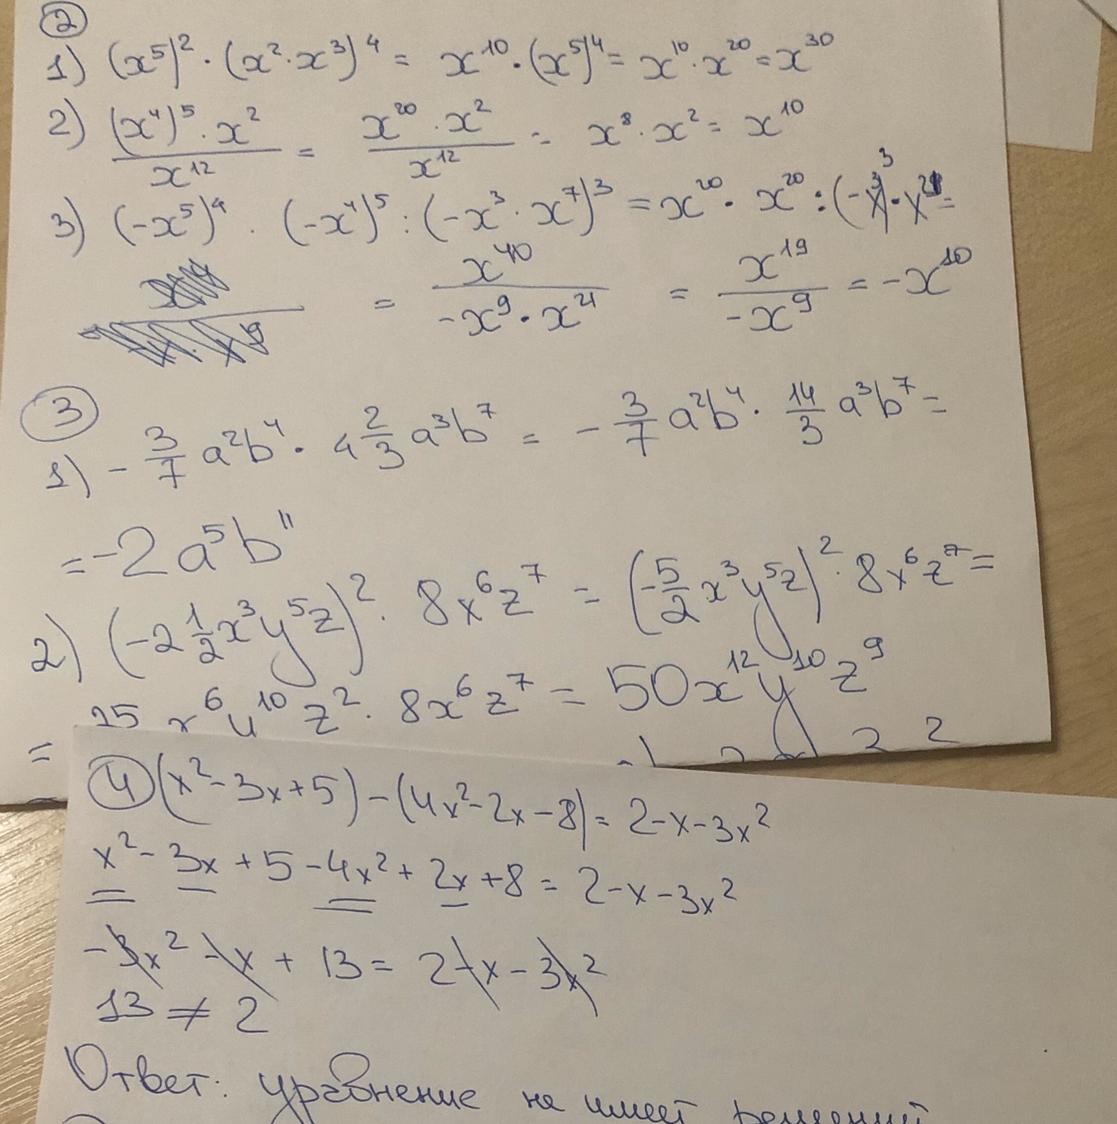 ②
1) (x⁵)² · (x² · x³)⁴ = x¹⁰ · (x⁵)⁴ = x¹⁰ · x²⁰ = x³⁰
2) (x⁴)⁵ · x² / x¹² = x²⁰ · x² / x¹² = x⁸ · x² = x¹⁰
3) (-x⁵)⁴ · (-x⁴)⁵ : (-x³ · x⁷)³ = x²⁰ · x²⁰ : (-x³)³ · x²¹ =
= x⁴⁰ / -x⁹ · x²¹ = x¹⁹ / -x⁹ = -x¹⁰
③
1) - 3/7 a²b⁴ · 4 2/3 a³b⁷ = - 3/7 a²b⁴ · 14/3 a³b⁷ =
= -2a⁵b¹¹
2) (-2 1/2 x³y⁵z)² · 8x⁶z⁷ = (-5/2 x³y⁵z)² · 8x⁶z⁷ =
= x⁶y¹⁰z² · 8x⁶z⁷ = 50x¹²y¹⁰z⁹
④ (x² - 3x + 5) - (4x² - 2x - 8) = 2 - x - 3x²
x² - 3x + 5 - 4x² + 2x + 8 = 2 - x - 3x²
-3x² - x + 13 = 2 - x - 3x²
13 ≠ 2
Ответ: уравнение не имеет решений